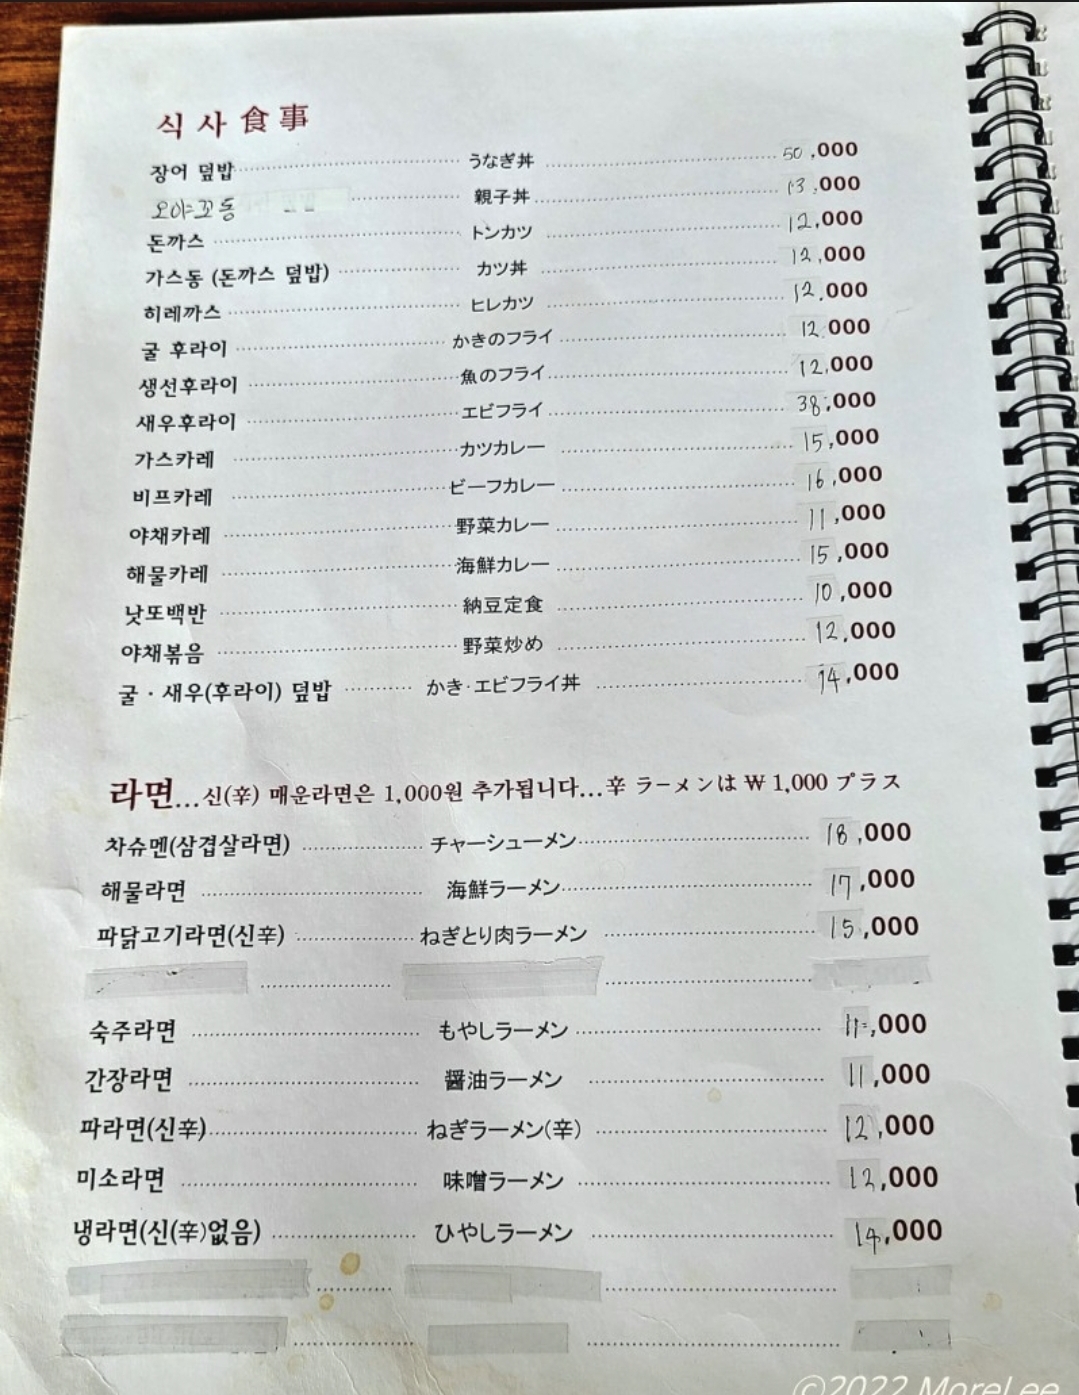 식사 食事
장어 덮밥 うなぎ丼 50,000
오야꼬동 親子丼 13,000
돈까스 トンカツ 12,000
가스동 (돈까스 덮밥) カツ丼 12,000
히레까스 ヒレカツ 12,000
굴 후라이 かきのフライ 12,000
생선후라이 魚のフライ 12,000
새우후라이 エビフライ 38,000
가스카레 カツカレー 15,000
비프카레 ビーフカレー 16,000
야채카레 野菜カレー 11,000
해물카레 海鮮カレー 15,000
낫또백반 納豆定食 10,000
야채볶음 野菜炒め 12,000
굴·새우(후라이) 덮밥 かき·エビフライ丼 14,000
라면...신(辛) 매운라면은 1,000원 추가됩니다...辛 ラーメンは ₩ 1,000 プラス
차슈멘(삼겹살라면) チャーシューメン 18,000
해물라면 海鮮ラーメン 17,000
파닭고기라면(신辛) ねぎとり肉ラーメン 15,000
숙주라면 もやしラーメン 11,000
간장라면 醤油ラーメン 11,000
파라면(신辛) ねぎラーメン(辛) 12,000
미소라면 味噌ラーメン 12,000
냉라면(신(辛)없음) ひやしラーメン 14,000
©2022 MoreLee